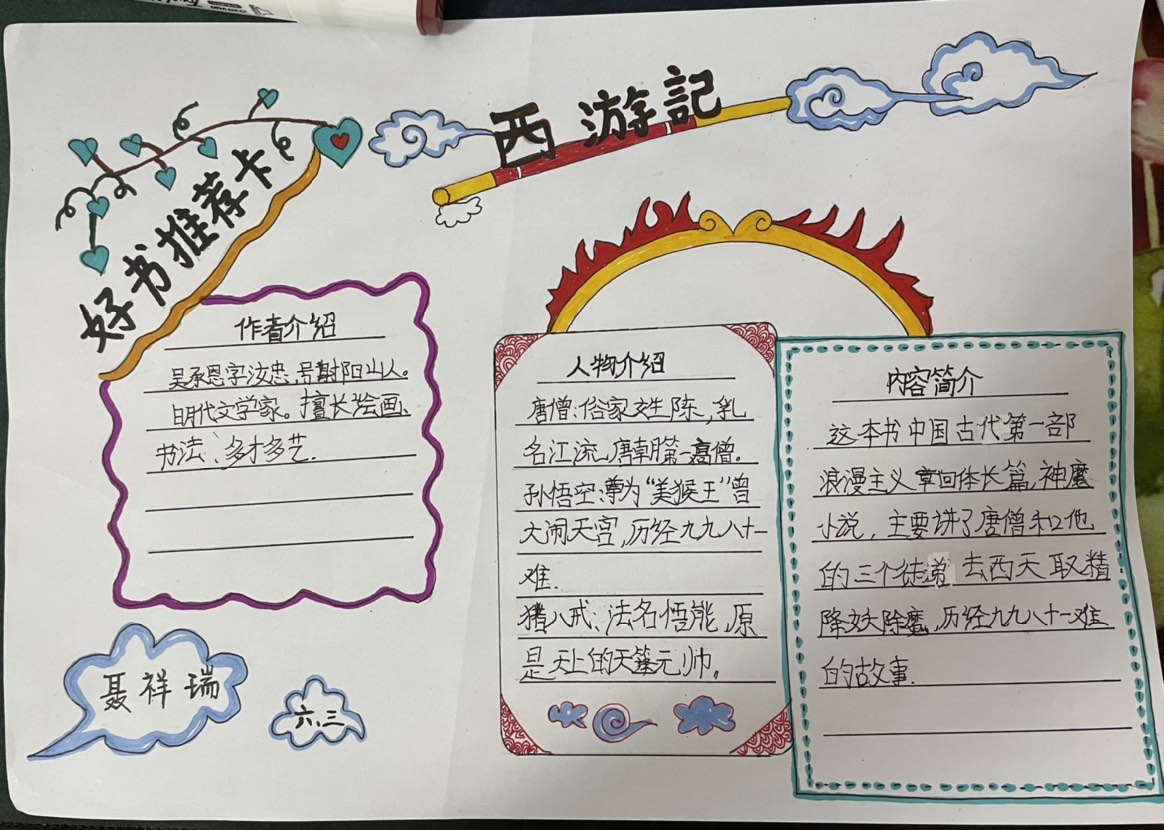 好书推荐卡
西游記
作者介绍
吴承恩字汝忠,号射阳山人。
明代文学家。擅长绘画、
书法、多才多艺.
人物介绍
唐僧:俗家姓陈,乳
名江流,唐朝第一高僧.
孙悟空:尊为“美猴王”曾
大闹天宫,历经九九八十一
难.
猪八戒:法名悟能,原
是天上的天篷元帅。
内容简介
这本书中国古代第一部
浪漫主义章回体长篇神魔
小说,主要讲了唐僧和他
的三个徒弟去西天取精
降妖除魔,历经九九八十一难
的故事.
聂祥瑞
六.三